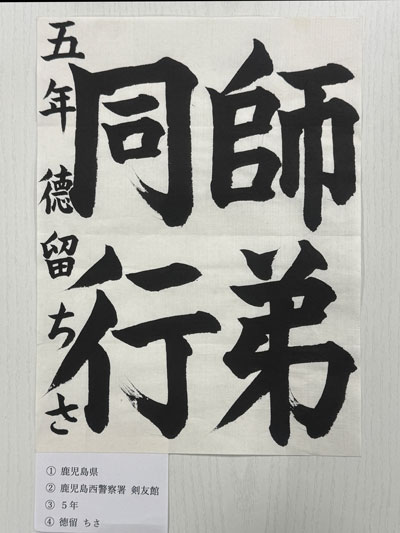 師弟
同行
五年 德留ちさ
① 鹿児島県
② 鹿児島西警察署 剣友館
③ 5年
④ 徳留 ちさ